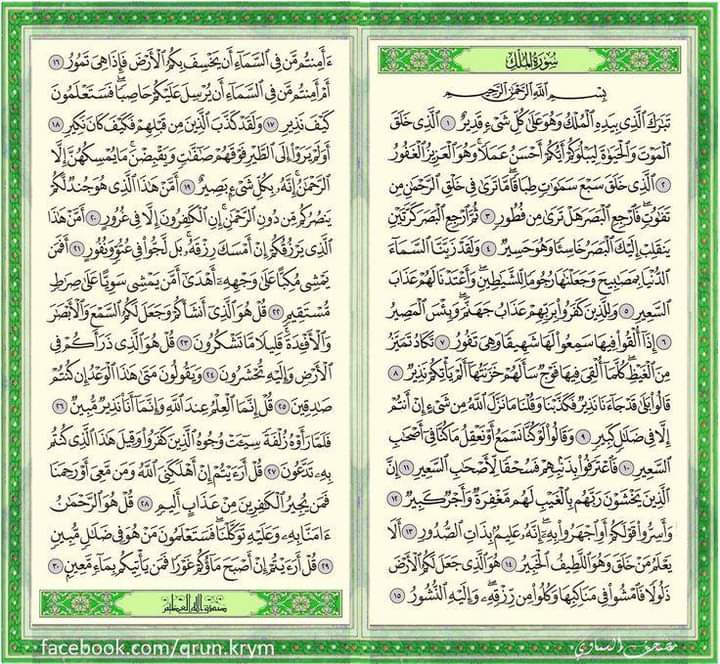 سُورَةُ المُلْكِ
بِسْمِ اللَّهِ الرَّحْمَٰنِ الرَّحِيمِ
تَبَٰرَكَ ٱلَّذِى بِيَدِهِ ٱلْمُلْكُ وَهُوَ عَلَىٰ كُلِّ شَىْءٍ قَدِيرٌ ١ ٱلَّذِى خَلَقَ
ٱلْمَوْتَ وَٱلْحَيَوٰةَ لِيَبْلُوَكُمْ أَيُّكُمْ أَحْسَنُ عَمَلًا ۚ وَهُوَ ٱلْعَزِيزُ ٱلْغَفُورُ
٢ ٱلَّذِى خَلَقَ سَبْعَ سَمَٰوَٰتٍ طِبَاقًا ۖ مَّا تَرَىٰ فِى خَلْقِ ٱلرَّحْمَٰنِ مِن
تَفَٰوُتٍ ۖ فَٱرْجِعِ ٱلْبَصَرَ هَلْ تَرَىٰ مِن فُطُورٍ ٣ ثُمَّ ٱرْجِعِ ٱلْبَصَرَ كَرَّتَيْنِ
يَنقَلِبْ إِلَيْكَ ٱلْبَصَرُ خَاسِئًا وَهُوَ حَسِيرٌ ٤ وَلَقَدْ زَيَّنَّا ٱلسَّمَآءَ
ٱلدُّنْيَا بِمَصَٰبِيحَ وَجَعَلْنَٰهَا رُجُومًا لِّلشَّيَٰطِينِ ۖ وَأَعْتَدْنَا لَهُمْ عَذَابَ
ٱلسَّعِيرِ ٥ وَلِلَّذِينَ كَفَرُوا۟ بِرَبِّهِمْ عَذَابُ جَهَنَّمَ ۖ وَبِئْسَ ٱلْمَصِيرُ
٦ إِذَآ أُلْقُوا۟ فِيهَا سَمِعُوا۟ لَهَا شَهِيقًا وَهِىَ تَفُورُ ٧ تَكَادُ تَمَيَّزُ
مِنَ ٱلْغَيْظِ ۖ كُلَّمَآ أُلْقِىَ فِيهَا فَوْجٌ سَأَلَهُمْ خَزَنَتُهَآ أَلَمْ يَأْتِكُمْ نَذِيرٌ ٨
قَالُوا۟ بَلَىٰ قَدْ جَآءَنَا نَذِيرٌ فَكَذَّبْنَا وَقُلْنَا مَا نَزَّلَ ٱللَّهُ مِن شَىْءٍ إِنْ أَنتُمْ
إِلَّا فِى ضَلَٰلٍ كَبِيرٍ ٩ وَقَالُوا۟ لَوْ كُنَّا نَسْمَعُ أَوْ نَعْقِلُ مَا كُنَّا فِىٓ أَصْحَٰبِ
ٱلسَّعِيرِ ١٠ فَٱعْتَرَفُوا۟ بِذَنۢبِهِمْ فَسُحْقًا لِّأَصْحَٰبِ ٱلسَّعِيرِ ١١ إِنَّ
ٱلَّذِينَ يَخْشَوْنَ رَبَّهُم بِٱلْغَيْبِ لَهُم مَّغْفِرَةٌ وَأَجْرٌ كَبِيرٌ ١٢
وَأَسِرُّوا۟ قَوْلَكُمْ أَوِ ٱجْهَرُوا۟ بِهِۦٓ ۖ إِنَّهُۥ عَلِيمٌۢ بِذَاتِ ٱلصُّدُورِ ١٣ أَلَا
يَعْلَمُ مَنْ خَلَقَ وَهُوَ ٱللَّطِيفُ ٱلْخَبِيرُ ١٤ هُوَ ٱلَّذِى جَعَلَ لَكُمُ ٱلْأَرْضَ
ذَلُولًا فَٱمْشُوا۟ فِى مَنَاكِبِهَا وَكُلُوا۟ مِن رِّزْقِهِۦ ۖ وَإِلَيْهِ ٱلنُّشُورُ ١٥
ءَأَمِنتُم مَّن فِى ٱلسَّمَآءِ أَن يَخْسِفَ بِكُمُ ٱلْأَرْضَ فَإِذَا هِىَ تَمُورُ ١٦
أَمْ أَمِنتُم مَّن فِى ٱلسَّمَآءِ أَن يُرْسِلَ عَلَيْكُمْ حَاصِبًا ۖ فَسَتَعْلَمُونَ
كَيْفَ نَذِيرِ ١٧ وَلَقَدْ كَذَّبَ ٱلَّذِينَ مِن قَبْلِهِمْ فَكَيْفَ كَانَ نَكِيرِ ١٨
أَوَلَمْ يَرَوْا۟ إِلَى ٱلطَّيْرِ فَوْقَهُمْ صَٰٓفَّٰتٍ وَيَقْبِضْنَ ۚ مَا يُمْسِكُهُنَّ إِلَّا
ٱلرَّحْمَٰنُ ۚ إِنَّهُۥ بِكُلِّ شَىْءٍۭ بَصِيرٌ ١٩ أَمَّنْ هَٰذَا ٱلَّذِى هُوَ جُندٌ لَّكُمْ
يَنصُرُكُم مِّن دُونِ ٱلرَّحْمَٰنِ ۚ إِنِ ٱلْكَٰفِرُونَ إِلَّا فِى غُرُورٍ ٢٠ أَمَّنْ هَٰذَا
ٱلَّذِى يَرْزُقُكُمْ إِنْ أَمْسَكَ رِزْقَهُۥ ۚ بَل لَّجُّوا۟ فِى عُتُوٍّ وَنُفُورٍ ٢١ أَفَمَن
يَمْشِى مُكِبًّا عَلَىٰ وَجْهِهِۦٓ أَهْدَىٰٓ أَمَّن يَمْشِى سَوِيًّا عَلَىٰ صِرَٰطٍ
مُّسْتَقِيمٍ ٢٢ قُلْ هُوَ ٱلَّذِىٓ أَنشَأَكُمْ وَجَعَلَ لَكُمُ ٱلسَّمْعَ وَٱلْأَبْصَٰرَ
وَٱلْأَفْـِٔدَةَ ۖ قَلِيلًا مَّا تَشْكُرُونَ ٢٣ قُلْ هُوَ ٱلَّذِى ذَرَأَكُمْ فِى
ٱلْأَرْضِ وَإِلَيْهِ تُحْشَرُونَ ٢٤ وَيَقُولُونَ مَتَىٰ هَٰذَا ٱلْوَعْدُ إِن كُنتُمْ
صَٰدِقِينَ ٢٥ قُلْ إِنَّمَا ٱلْعِلْمُ عِندَ ٱللَّهِ وَإِنَّمَآ أَنَا۠ نَذِيرٌ مُّبِينٌ ٢٦
فَلَمَّا رَأَوْهُ زُلْفَةً سِيٓـَٔتْ وُجُوهُ ٱلَّذِينَ كَفَرُوا۟ وَقِيلَ هَٰذَا ٱلَّذِى كُنتُم
بِهِۦ تَدَّعُونَ ٢٧ قُلْ أَرَءَيْتُمْ إِنْ أَهْلَكَنِىَ ٱللَّهُ وَمَن مَّعِىَ أَوْ رَحِمَنَا
فَمَن يُجِيرُ ٱلْكَٰفِرِينَ مِنْ عَذَابٍ أَلِيمٍ ٢٨ قُلْ هُوَ ٱلرَّحْمَٰنُ
ءَامَنَّا بِهِۦ وَعَلَيْهِ تَوَكَّلْنَا ۖ فَسَتَعْلَمُونَ مَنْ هُوَ فِى ضَلَٰلٍ مُّبِينٍ
٢٩ قُلْ أَرَءَيْتُمْ إِنْ أَصْبَحَ مَآؤُكُمْ غَوْرًا فَمَن يَأْتِيكُم بِمَآءٍ مَّعِينٍۭ ٣٠
صدق الله العظيم
facebook.com/qrun.krym